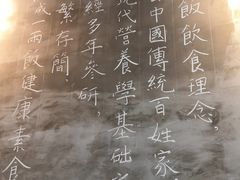 飯飲食理念，
中國傳統百姓家
現代營養學基础
經多年參研，
繁存簡
成一兩飯健康素食